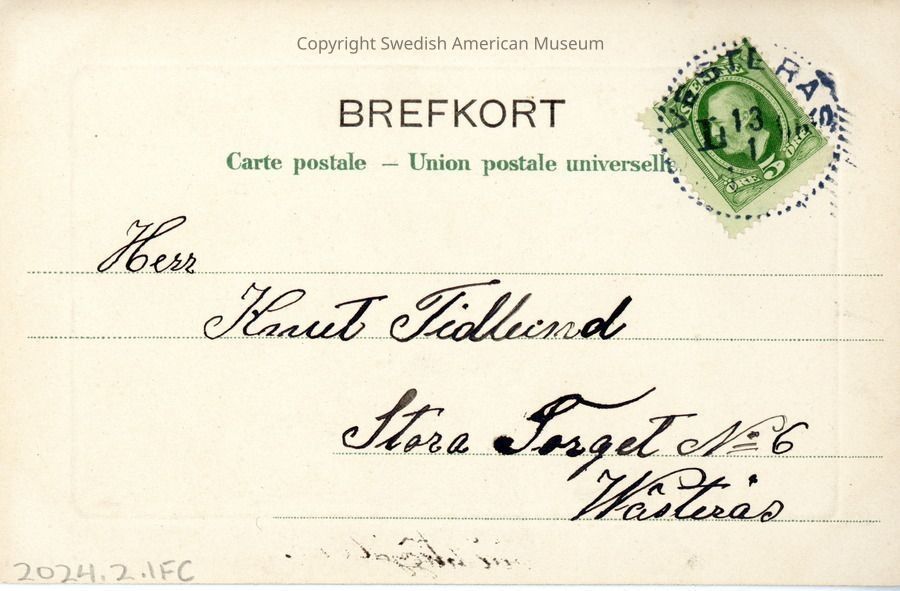 Copyright Swedish American Museum
BREFKORT
Carte postale — Union postale universelle
VESTERÅS
13
1
L
SVERIGE
5
ÖRE
ÖRE
Herr
Knut Tidlund
Stora Torget No 6
Wästerås
2024.2.1FC